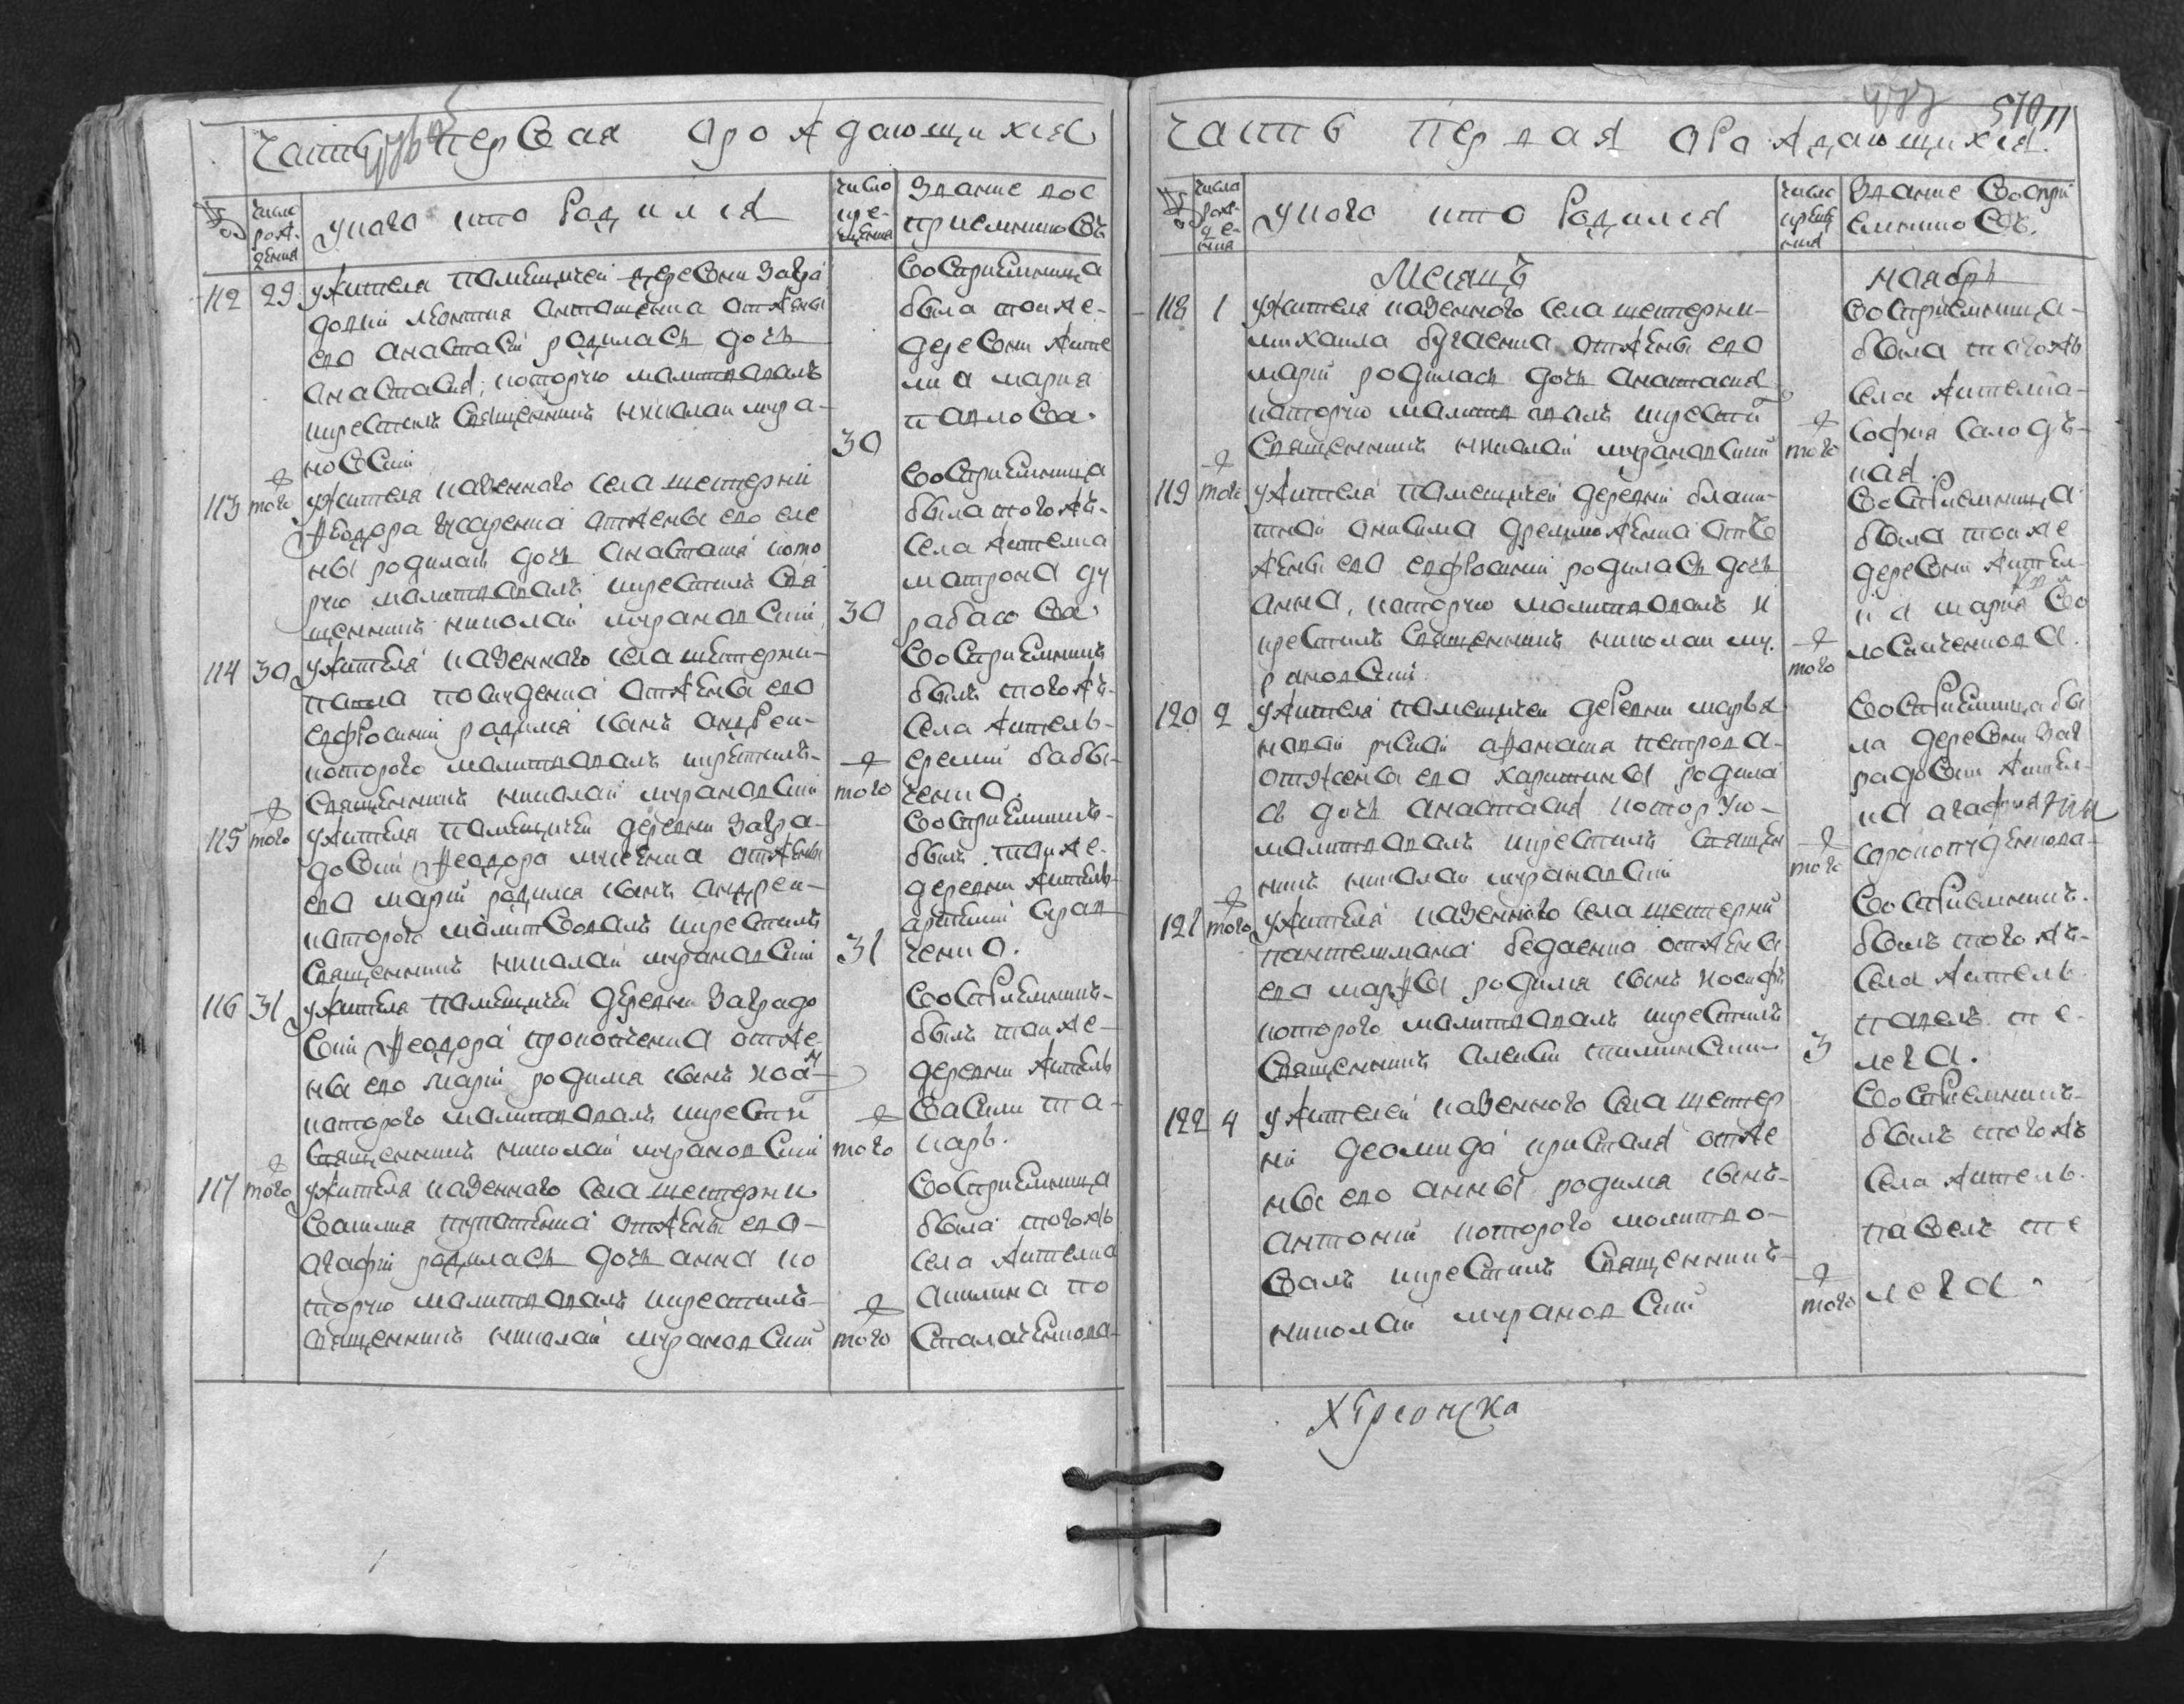 часть первая орождающихся
число рождения
укого кто Родился
число крещения
Звание вос
приемниковъ
112 29 ужителя памещичей деревни Загра
довки леонтия антошенка отжены
его анастасіи родилась дочь
анастасия, которую малитвовалъ
крестилъ священникъ николаи мура
новскій
30
восприемница
была тойже
деревни жите
лка мария
павлова.
113 того ужителя казеннаго села шестерни
Феодора писаренка отжены его еле
ны родилась дочь анастасия кото
рую малитвовалъ крестилъ свя
щенникъ николай мурановскій
30
восприемница
была тогожъ
села жителка
матрона ду
рабасова.
114 30 ужителя казеннаго села шестерни
павла
отжены его
евфросиніи родился сынъ андреи
которого малитвовалъ крестилъ
священникъ николай мурановскій
того
восприемникъ
былъ тогожъ
села житель
еремій бабы
ченко.
115 того ужителя памещичей деревни Загра
довки Феодора отжены
его маріи родился сынъ андреи
которого малитвовалъ крестилъ
священникъ николай мурановскій
31
восприемникъ
былъ тойже
деревни житель

ченко.
116 31 ужителя памещичей деревни Заградо
вки Феодора прокопченка отже
ны его маріи родился сынъ иоа
которого малитвовалъ крести
священникъ николай мурановскій
того
восприемникъ
былъ тойже
деревни житель
василій то
карь.
117 того ужителя казеннаго села шестерни
отжены его
агафіи родилась дочь анна ко
торую малитвовалъ крестилъ
священникъ николай мурановскій
того
восприемница
была тогожъ
села жителка
акилина по
сталаченкова
477 570 11
часть первая ораждающихся.
числа рождения
укого кто Родился
число крещения
Звание воспри
емниковъ.
Месяцъ ноябрь
118 1 ужителя казенного села шестерни
михаила бугаенка отжены его
маріи родилась дочь анастасия
которую малитвовалъ крести
священникъ николай мурановскій
того
восприемница
была тогожъ
села жителка
софия солодъ
кая.
119 того ужителя памещичей деревни блакит
ной онисима отъ
жены его евфросиніи родилась дочь
анна, которую малитвовалъ и
крестилъ священникъ николаи му
рановскій
того
восприемница
была тойже
деревни жител
ка мария во
лосиченкова.
120 2 ужителя памещичей деревни марья
новки афанасия петрова
отжены его харитины родила
сь дочь анастасия которую
малитвовалъ крестилъ священ
никъ николаи мурановскій
того
восприемница бы
ла деревни заг
радовки жител
ка агафия

121 того ужителя казенного села шестерни
пантелимана бедаенка отжены
его марфы родился сынъ иосифъ
которого малитвовалъ крестилъ
священникъ алексій
3
восприемникъ
былъ тогожъ
села житель
павелъ те
лега.
122 4 ужителей казенного села шестер
ни деомида присталя отже
ны его анны родился сынъ
антоній которого молитво
валъ крестилъ священникъ
николай мурановскій
того
восприемникъ
былъ тогожъ
села житель
павелъ те
лега.
Херсонска